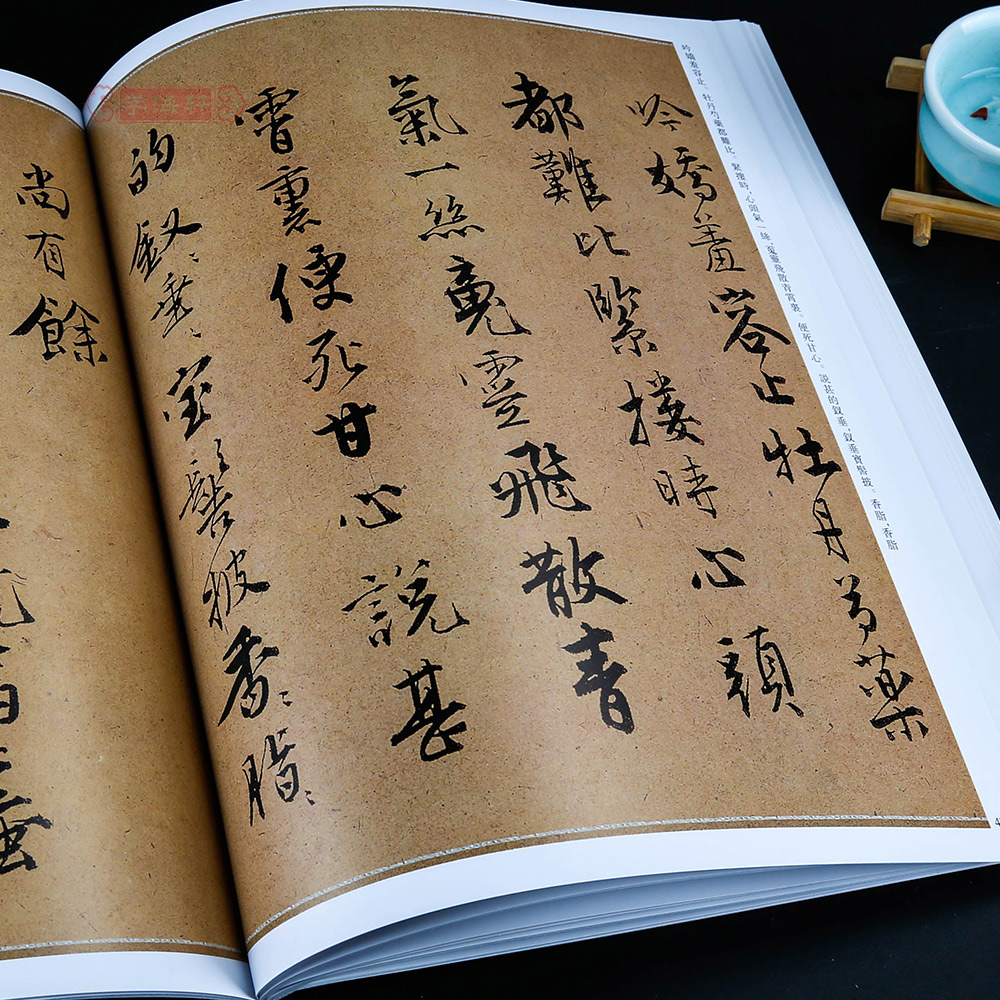 吟嬌羞容止。牡丹芍藥都難比。緊摟時,心頭氣一絲,䰟靈飛散青霄裏。便死甘心。説甚的釵垂,釵垂寶髻披。香脂,香脂
吟嬌羞容止牡丹芍藥
都難比緊摟時心頭
氣一絲䰟靈飛散青
霄裏便死甘心說甚
的釵〻垂〻宝髻披香〻脂〻
尚有餘